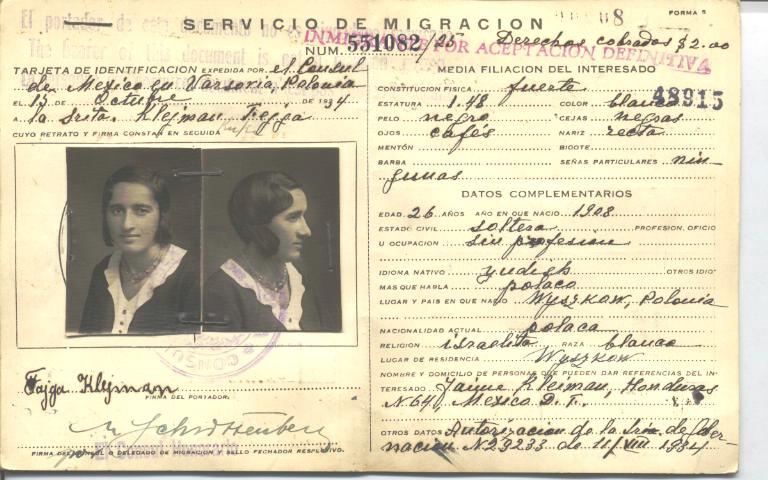 SERVICIO DE MIGRACION
FORMA 5
El portador de este documento no es
The bearer of this document is
INMIGRANTE POR ACEPTACION DEFINITIVA
NUM. 551082/25
Derechos cobrados $2.00
TARJETA DE IDENTIFICACION EXPEDIDA POR el Consul
de Mexico en Varsovia, Polonia
EL 15 DE Octubre DE 1934
A la Srita. Klejman Fejga
CUYO RETRATO Y FIRMA CONSTAN EN SEGUIDA
Fajga Klejman
FIRMA DEL PORTADOR.
El Consul Honorario
FIRMA DEL CONSUL O DELEGADO DE MIGRACION Y SELLO FECHADOR RESPECTIVO.
MEDIA FILIACION DEL INTERESADO
CONSTITUCION FISICA fuerte
48915
ESTATURA 1.48 COLOR blanco
PELO negro CEJAS negras
OJOS cafés NARIZ recta
MENTÓN BIGOTE
BARBA SEÑAS PARTICULARES nin-
gunas
DATOS COMPLEMENTARIOS
EDAD 26 AÑOS AÑO EN QUE NACIO 1908
ESTADO CIVIL soltera PROFESION, OFICIO
U OCUPACION sin profesion
IDIOMA NATIVO yudish OTROS IDIO-
MAS QUE HABLA polaco
LUGAR Y PAIS EN QUE NACIO Wyszkow, Polonia
NACIONALIDAD ACTUAL polaca
RELIGION israelita RAZA blanca
LUGAR DE RESIDENCIA Wyszkow
NOMBRE Y DOMICILIO DE PERSONAS QUE PUEDEN DAR REFERENCIAS DEL IN-
TERESADO Jaime Kleiman, Honduras
N 64, Mexico D. F.
OTROS DATOS Autorizacion de la Sria. de Gober-
nacion N 29233 de 11/VIII 1934